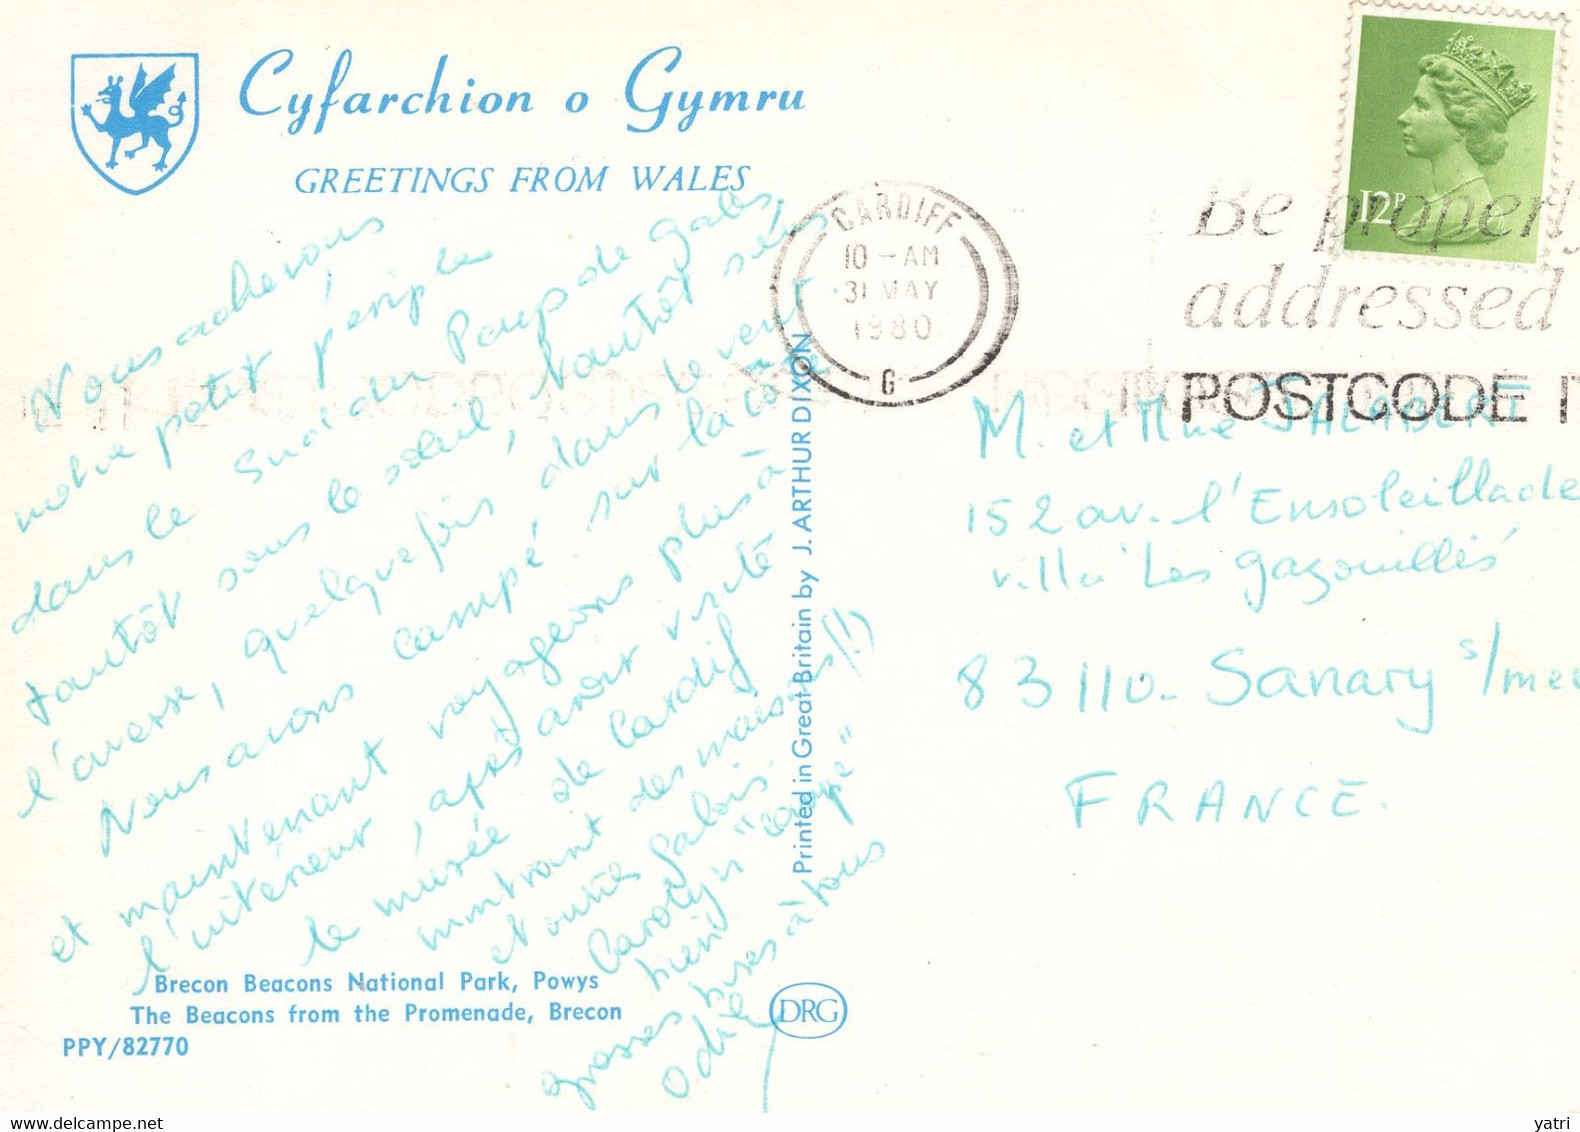 Cyfarchion o Gymru
GREETINGS FROM WALES
Nous achevons
notre petit périple
dans le Sud du Pays de Galles,
tantôt sous le soleil, tantôt sous
l'averse, quelquefois dans le vent.
Nous avons campé, sur la côte
et maintenant voyageons plus à
l'intérieur, après avoir visité
le musée de Cardif
montrant des maisons (!)
et outils galois.
Carolyn "campe"
bien
grosses bises à tous
Odile
Brecon Beacons National Park, Powys
The Beacons from the Promenade, Brecon
PPY/82770
Printed in Great Britain by J. ARTHUR DIXON
DRG
CARDIFF
10 - AM
31 MAY
1980
G
12P
Be properly
addressed
POSTCODE IT
M. et Mme JALABERT
152 av. l'Ensoleillade
villa "Les gazouillis"
83110 - Sanary s/mer
FRANCE.
yatri